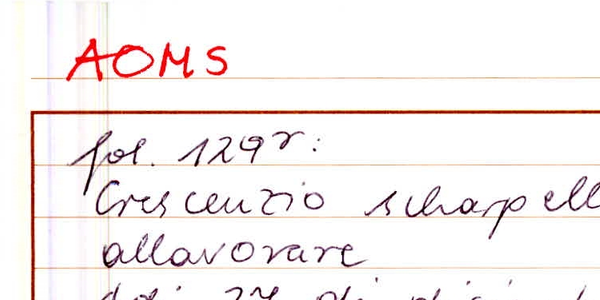 AOMS
fol. 129r:
Crescenzio scharpell
allavorare